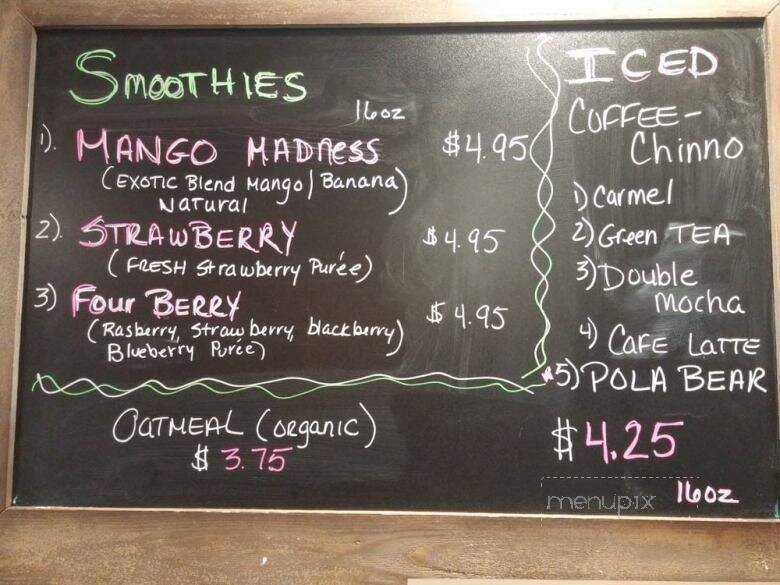 SMOOTHIES
16oz
1). MANGO MADNESS $4.95
(EXOTIC Blend Mango/Banana)
Natural
2). STRAWBERRY $4.95
(FRESH Strawberry Purée)
3) Four BERRY $4.95
(Rasberry, Strawberry, blackberry)
Blueberry Purée)
OATMEAL (organic)
$3.75
ICED
COFFEE-
Chinno
1) Carmel
2) Green TEA
3) Double
Mocha
4) CAFE LATTE
*5) POLA BEAR
$4.25
16oz
menupix